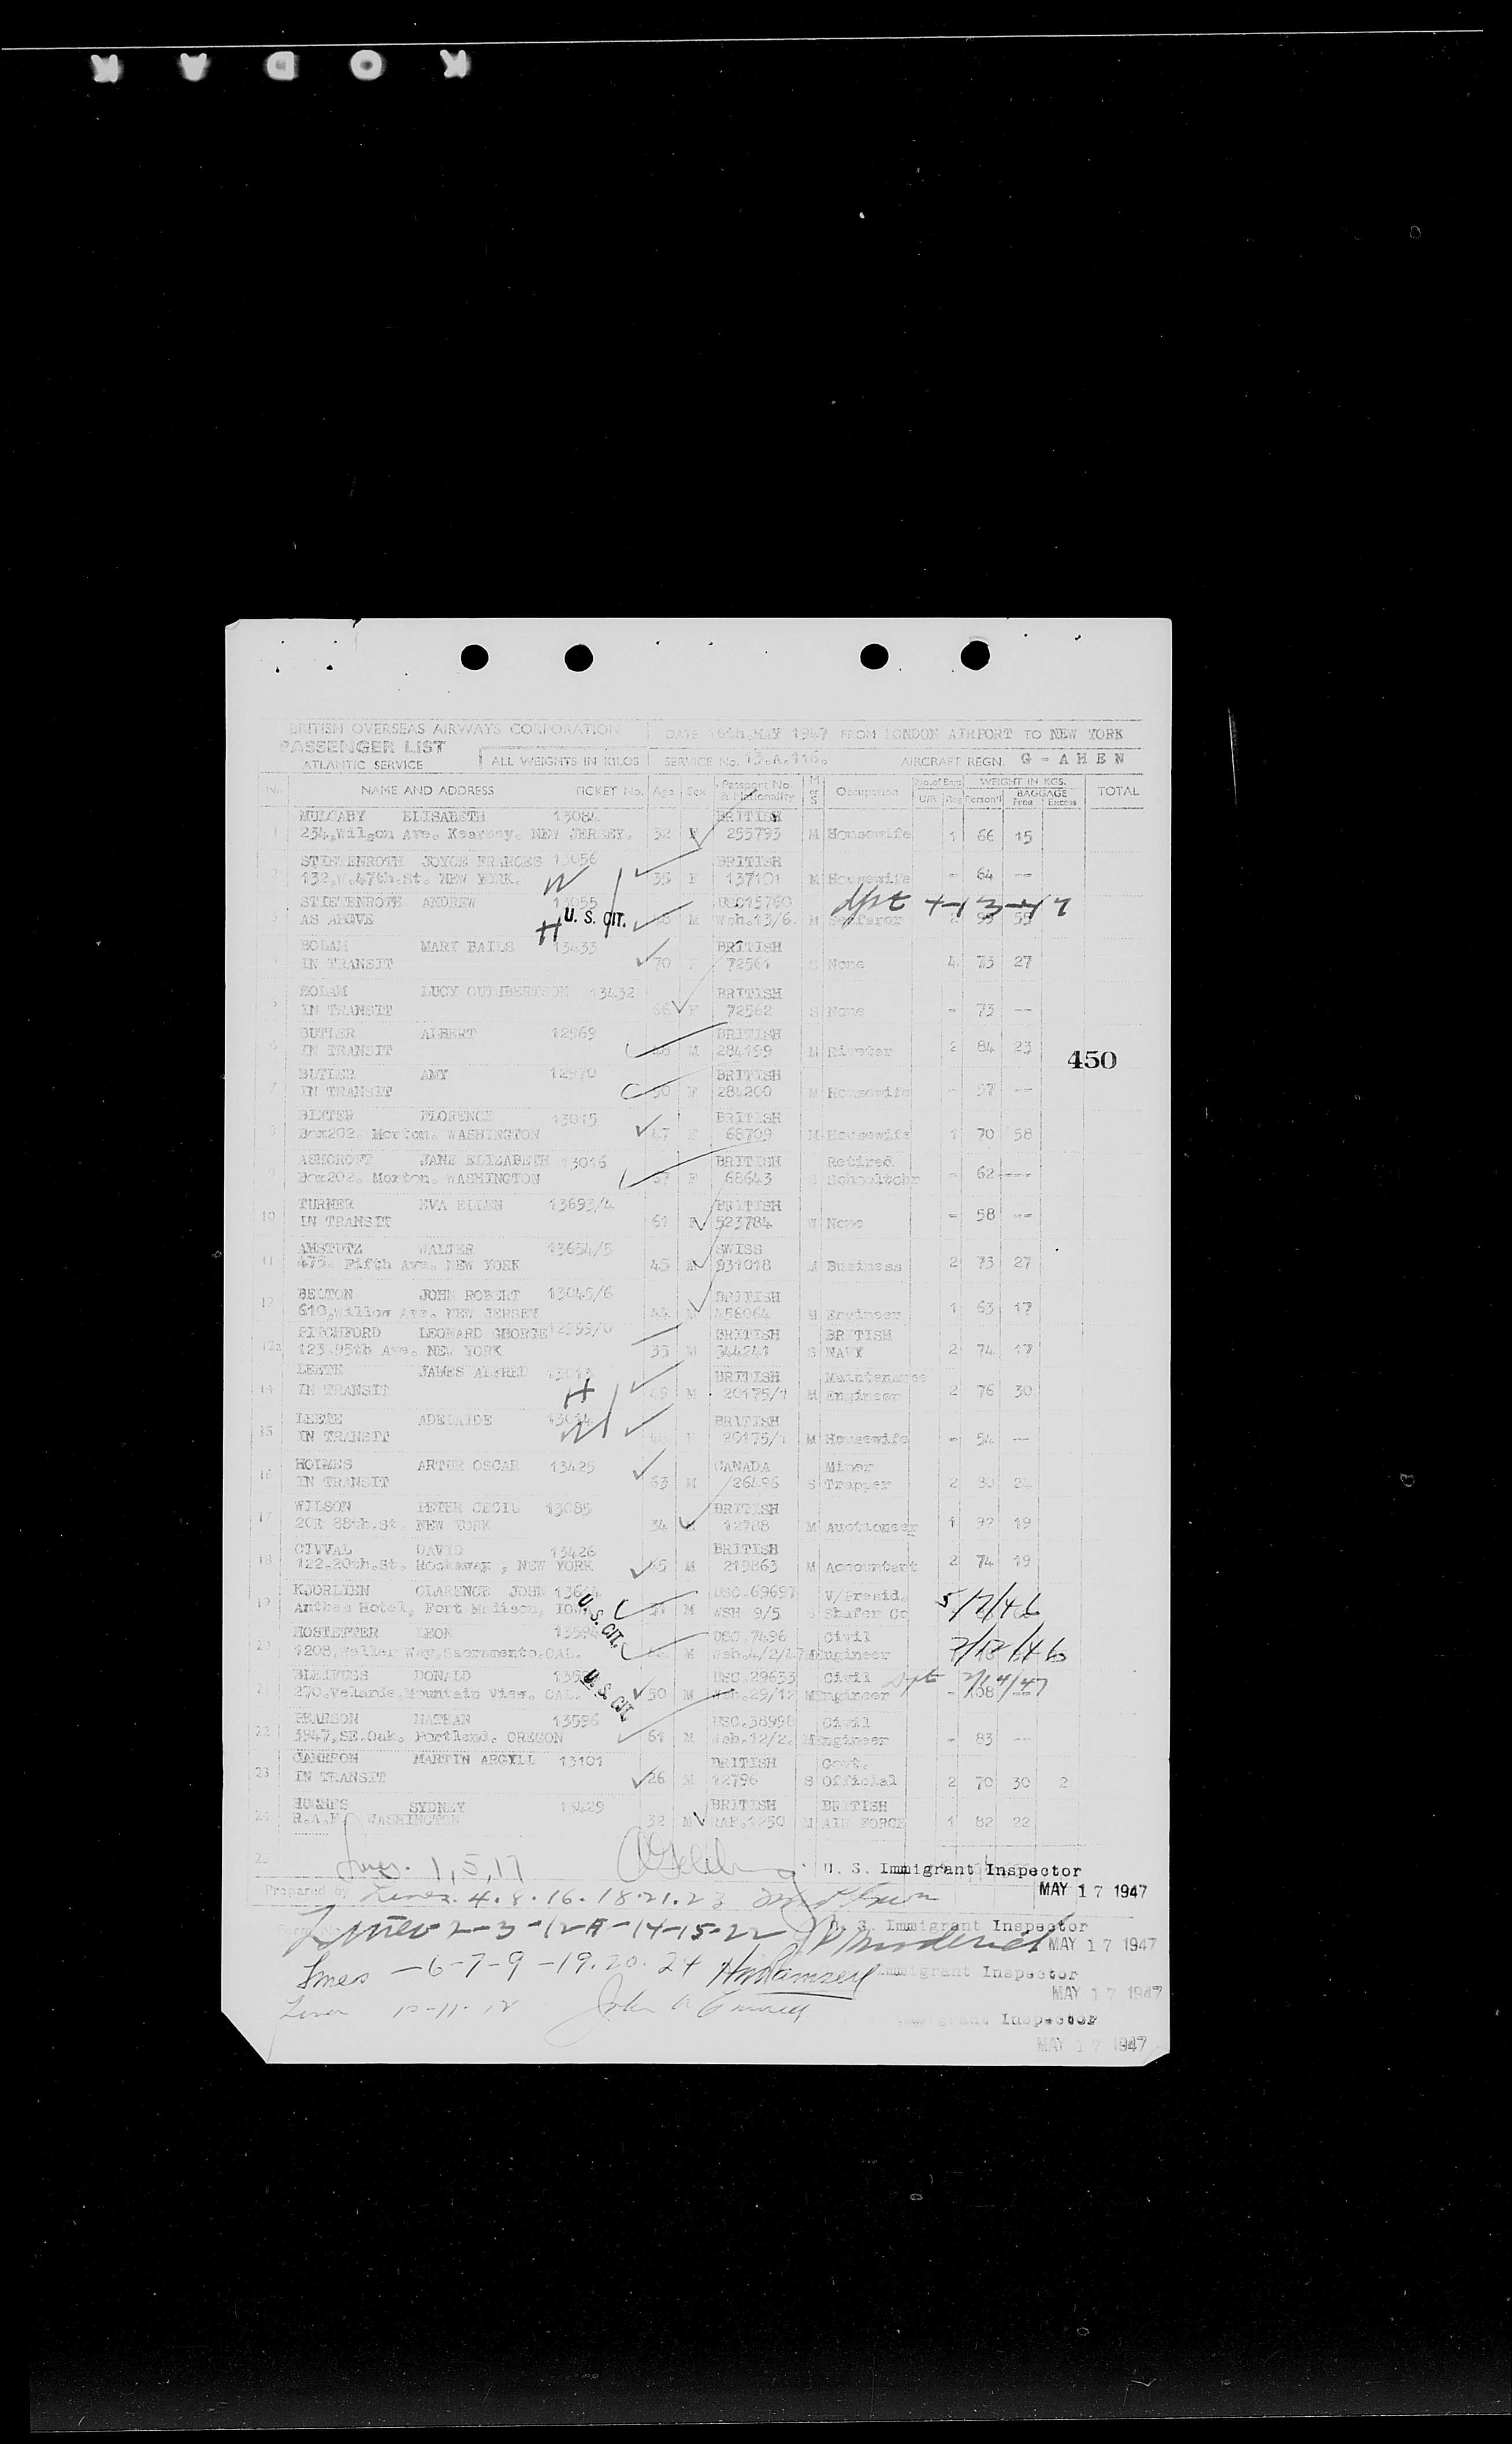 KODAK
BRITISH OVERSEAS AIRWAYS CORPORATION DATE 16th.MAY 1947 FROM LONDON AIRPORT TO NEW YORK
PASSENGER LIST
ATLANTIC SERVICE ALL WEIGHTS IN KILOS SERVICE No. 13.A.116. AIRCRAFT REGN. G - A H E N
No. NAME AND ADDRESS TICKET No. Age Sex Passport No. & Nationality M or S Occupation No. of Bags U/R Reg WEIGHT IN KGS. Person'l BAGGAGE Free Excess TOTAL
ELISABETH 13084 BRITISH
1 234,Wilson Ave. Kearney. NEW JERSEY. 32 F 255793 M Housewife 1 66 15
JOYCE FRANCES 13056 BRITISH
2 132,W.47th.St. NEW YORK. W 35 F 137101 M Housewife - 64 --
ANDREW 13055 USC15760
3 AS ABOVE H U. S. CIT. M Wsh.13/6. M 2 55
BOLAM MARY BAILS 13433 BRITISH
4 IN TRANSIT 70 F 72561 S None 4 73 27
BOLAM LUCY 13432 BRITISH
5 IN TRANSIT 66 F 72562 S None - 73 --
BUTLER ALBERT 12969 BRITISH
6 IN TRANSIT M 284199 M Riveter 2 84 23
450
BUTLER AMY 12970 BRITISH
7 IN TRANSIT 50 F 284200 M Housewife - 57 --
FLORENCE 13015 BRITISH
8 Box202. Morton. WASHINGTON 47 F 68709 M Housewife 1 70 58
ASHCROFT JANE ELIZABETH 13016 BRITISH Retired
9 Box202. Morton. WASHINGTON 67 F 68643 S Schooltchr - 62 ---
TURNER EVA ELLEN 13693/4 BRITISH
10 IN TRANSIT 61 F 523784 W None - 58 --
AMSTUTZ WALTER 13654/5 SWISS
11 475. Fifth Ave. NEW YORK 45 M 931018 M Business 2 73 27
BELTON JOHN ROBERT 13045/6 BRITISH
12 610,Willow Ave. NEW JERSEY 44 M 456064 M Engineer 1 63 17
PITCHFORD LEONARD GEORGE BRITISH BRITISH
12a 123.95th Ave. NEW YORK 35 M 544241 S NAVY 2 74 17
LEETE JAMES ALFRED 13013 BRITISH Maintenance
14 IN TRANSIT H 49 M 20175/1 M Engineer 2 76 30
LEETE ADELAIDE 13014 BRITISH
15 IN TRANSIT W F 20175/1 M Housewife - 54 --
HOLMES ARTUR OSCAR 13425 CANADA Miner
16 IN TRANSIT 63 M /26496 S Trapper 2
WILSON PETER CECIL 13085 BRITISH
17 20E 88th.St. NEW YORK 34 M 12788 M Auctioneer 1 92 19
CIVVAL DAVID 13426 BRITISH
18 122.20th.St. Rockaway , NEW YORK 45 M 219863 M Accountant 2 74 19
CLARENCE JOHN USC.69697 V/Presid.
19 Anthes Hotel, Fort Madison, IOWA U. S. CIT. M WSH 9/5 S Shafer Co 5/7/46
HOSTETTER LEON 13594 USC.7496 Civil
20 1208,Weller Way,Sacramento.CAL. M Wsh.4/2/47 M Engineer
DONALD USC.29633 Civil
21 270,Velarde,Mountain View. CAL. U. S. CIT. 50 M Wsh.29/12 M Engineer - 108 --
PEARSON NATHAN 13596 USC.38998 Civil
22 3947,SE.Oak. Portland. OREGON 61 M Wsh.12/2. M Engineer - 83 --
CAMERON MARTIN ARGYLL 13101 BRITISH Govt.
23 IN TRANSIT 26 M 12796 S Official 2 70 30 2
HUGHES SYDNEY 13429 BRITISH BRITISH
24 R.A.F. WASHINGTON 32 M RAF.1250 M AIR FORCE 1 82 22
25 Lines. 1, 5, 17 U. S. Immigrant Inspector
Prepared by Lines. 4. 8. 16. 18. 21. 23 MAY 17 1947
Lines 2-3-12A-14-15-22 U. S. Immigrant Inspector
MAY 17 1947
Lines -6-7-9-19.20.24 Immigrant Inspector
MAY 17 1947
Lines 10-11-12 Immigrant Inspector
MAY 17 1947